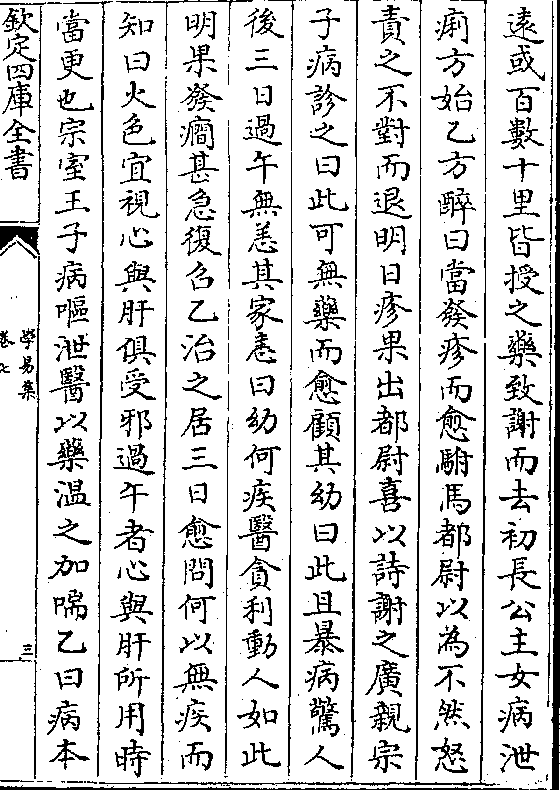 遠或百數十里皆授之藥致謝而去初長公主女病泄
痢方始乙方醉曰當發疹而愈駙馬都尉以為不然怒
責之不對而退明日疹果出都尉喜以詩謝之廣親宗
子病診之曰此可無藥而愈顧其幼曰此且暴病驚人
後三日過午無恙其家恚曰幼何疾醫貪利動人如此
明果發癇甚急復召乙治之居三日愈問何以無疾而
知曰火色宜視心與肝俱受邪過午者心與肝所用時
當更也宗室王子病嘔泄醫以藥溫之加喘乙曰病本
欽定四庫全書
學易集
卷七
三